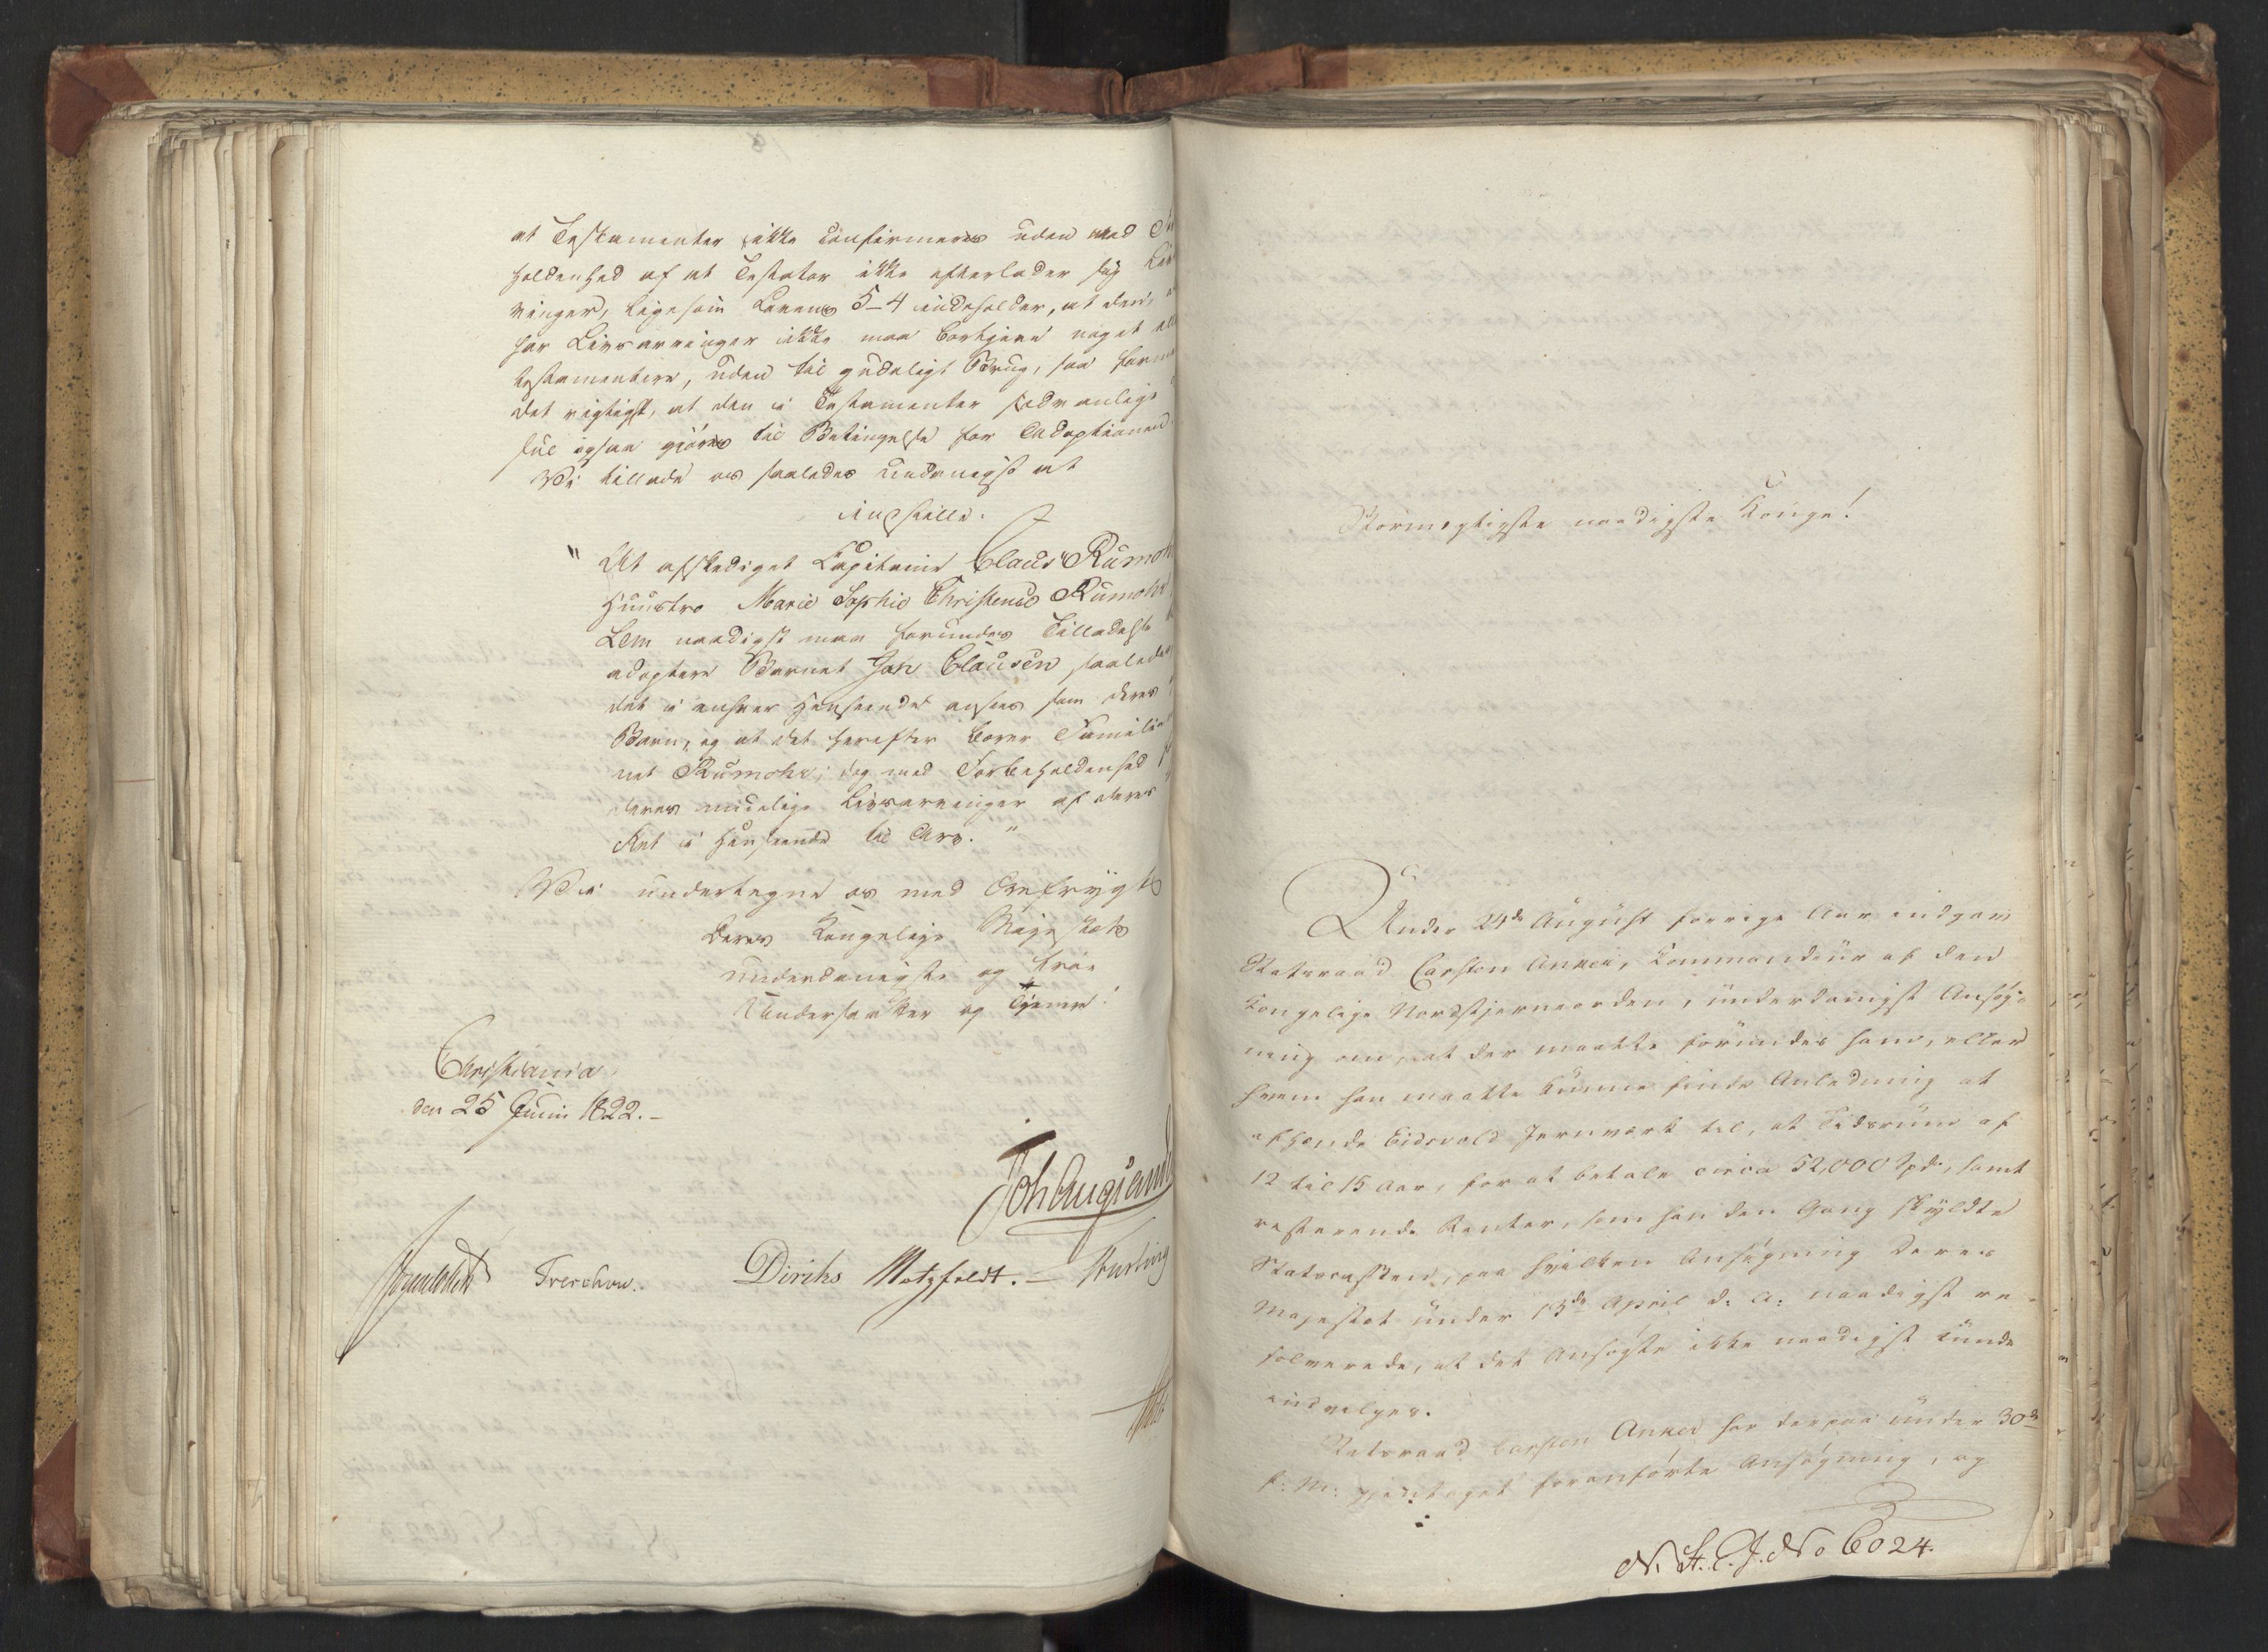 at Testamenter ikke confirmeres uden med
holdenhed af at Testator ikke efterlader sig
vinger, ligesom Lovens 5-4 indeholder, at den,
har Livsarvinger ikke maa bortgive noget
testamentere, uden til gudeligt Brug, saa
det rigtigst, at den i Testamenter sædvanlige
ogsaa gjøres til Betingelse for Adoptionen.
Vi tillade os saaledes underdanigst at
indstille.
"At afskediget Capitaine Claus Rumohr
Huustro Marie Sophie Christense Rumohr
Lem naadigst maa forundes Tilladelse
adoptere Barnet Jan Clausen saaledes
det i enhver Henseende ansees som deres
Barn, og at det herefter bærer Familie
net Rumohr; dog med Forbeholdenhed
deres mulige Livsarvinger af deres
Ret i Henseende til Arv."
Vi undertegne os med Ærefrygt
Deres Kongelige Majestæts
underdanigste og troe
Undersaatter og Tjenere.
Christiania
den 25 Junii 1822.-
Treschow. Diriks Motzfeldt.-
Stormægtigste naadigste Konge!
Under 24de August forrige Aar indgav
Statsraad Carsten Anker, Kommandeur af den
Kongelige Nordstjerneorden, underdanigst Ansøg-
ning om, at der maatte forundes ham, eller
hvem han maatte kunne finde Anledning at
afhænde Eidsvold Jernværk til, et Tidsrum af
12 til 15 Aar, for at betale circa 52,000 Spd., samt
resterende Renter, som han den Gang skyldte
Statscassen, paa hvilken Ansøgning Deres
Majestæt under 13de April d: A: naadigst re-
solverede, at det Ansøgte ikke naadigst kunde
indvilges.
Statsraad Carsten Anker har derpaa under 30d
f: M: gjentaget foranførte Ansøgning, og
N. St. C. J. No 6024.